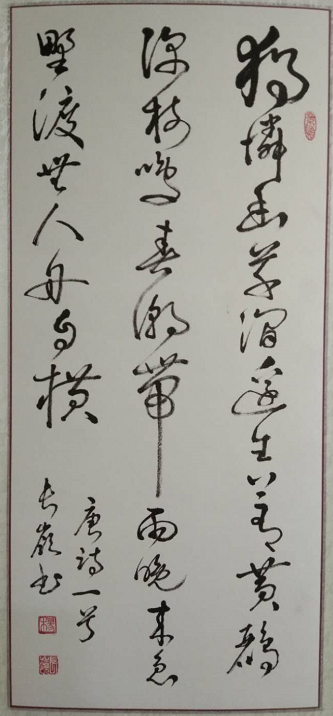 獨憐幽草澗邊生上有黃鸝
深樹鳴春潮帶雨晚來急
野渡無人舟自橫
唐詩一首
長嶺書